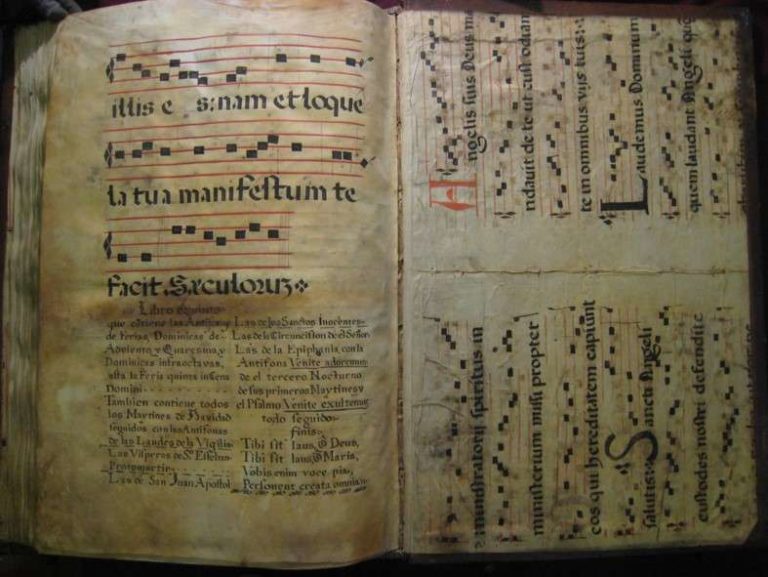 illis e s: nam et loque
la tua manifestum te
facit. Sæculorum
Libro quinto
que cōtiene las Antifonas
de Ferias, Dominicas de
Adviento y Quaresma y
Dominicas infraoctavas,
asta la Feria quinta in Cena
Domini
Tambien contiene todos
los Maytines de Navidad
seguidos con las Antifonas
de las Laudes de la Vigilia
Las Visperas de Sn Esteban
Protomartir
Las de San Juan Apostol
Las de los Sanctos Inocentes
Las de la Circumcision de el Señor
Las de la Epiphania con la
Antifona Venite adoremus
de el tercero Nocturno
de sus primeros Maytines y
el Psalmo Venite exultemus
todo seguido.
finis.
Tibi sit laus, ô Deus,
Tibi sit laus, ô Maria,
Vobis enim voce pia,
Personent creata omnia
ministratorij spiritus in
ministerium missi propter
eos qui hereditatem capiunt
salutis: Sancti Angeli
custodes nostri defendite
Angelis suis Deus ma
ndavit de te ut custodian
te in omnibus vijs tuis:
Laudemus Dominum
quem laudant Angeli quo